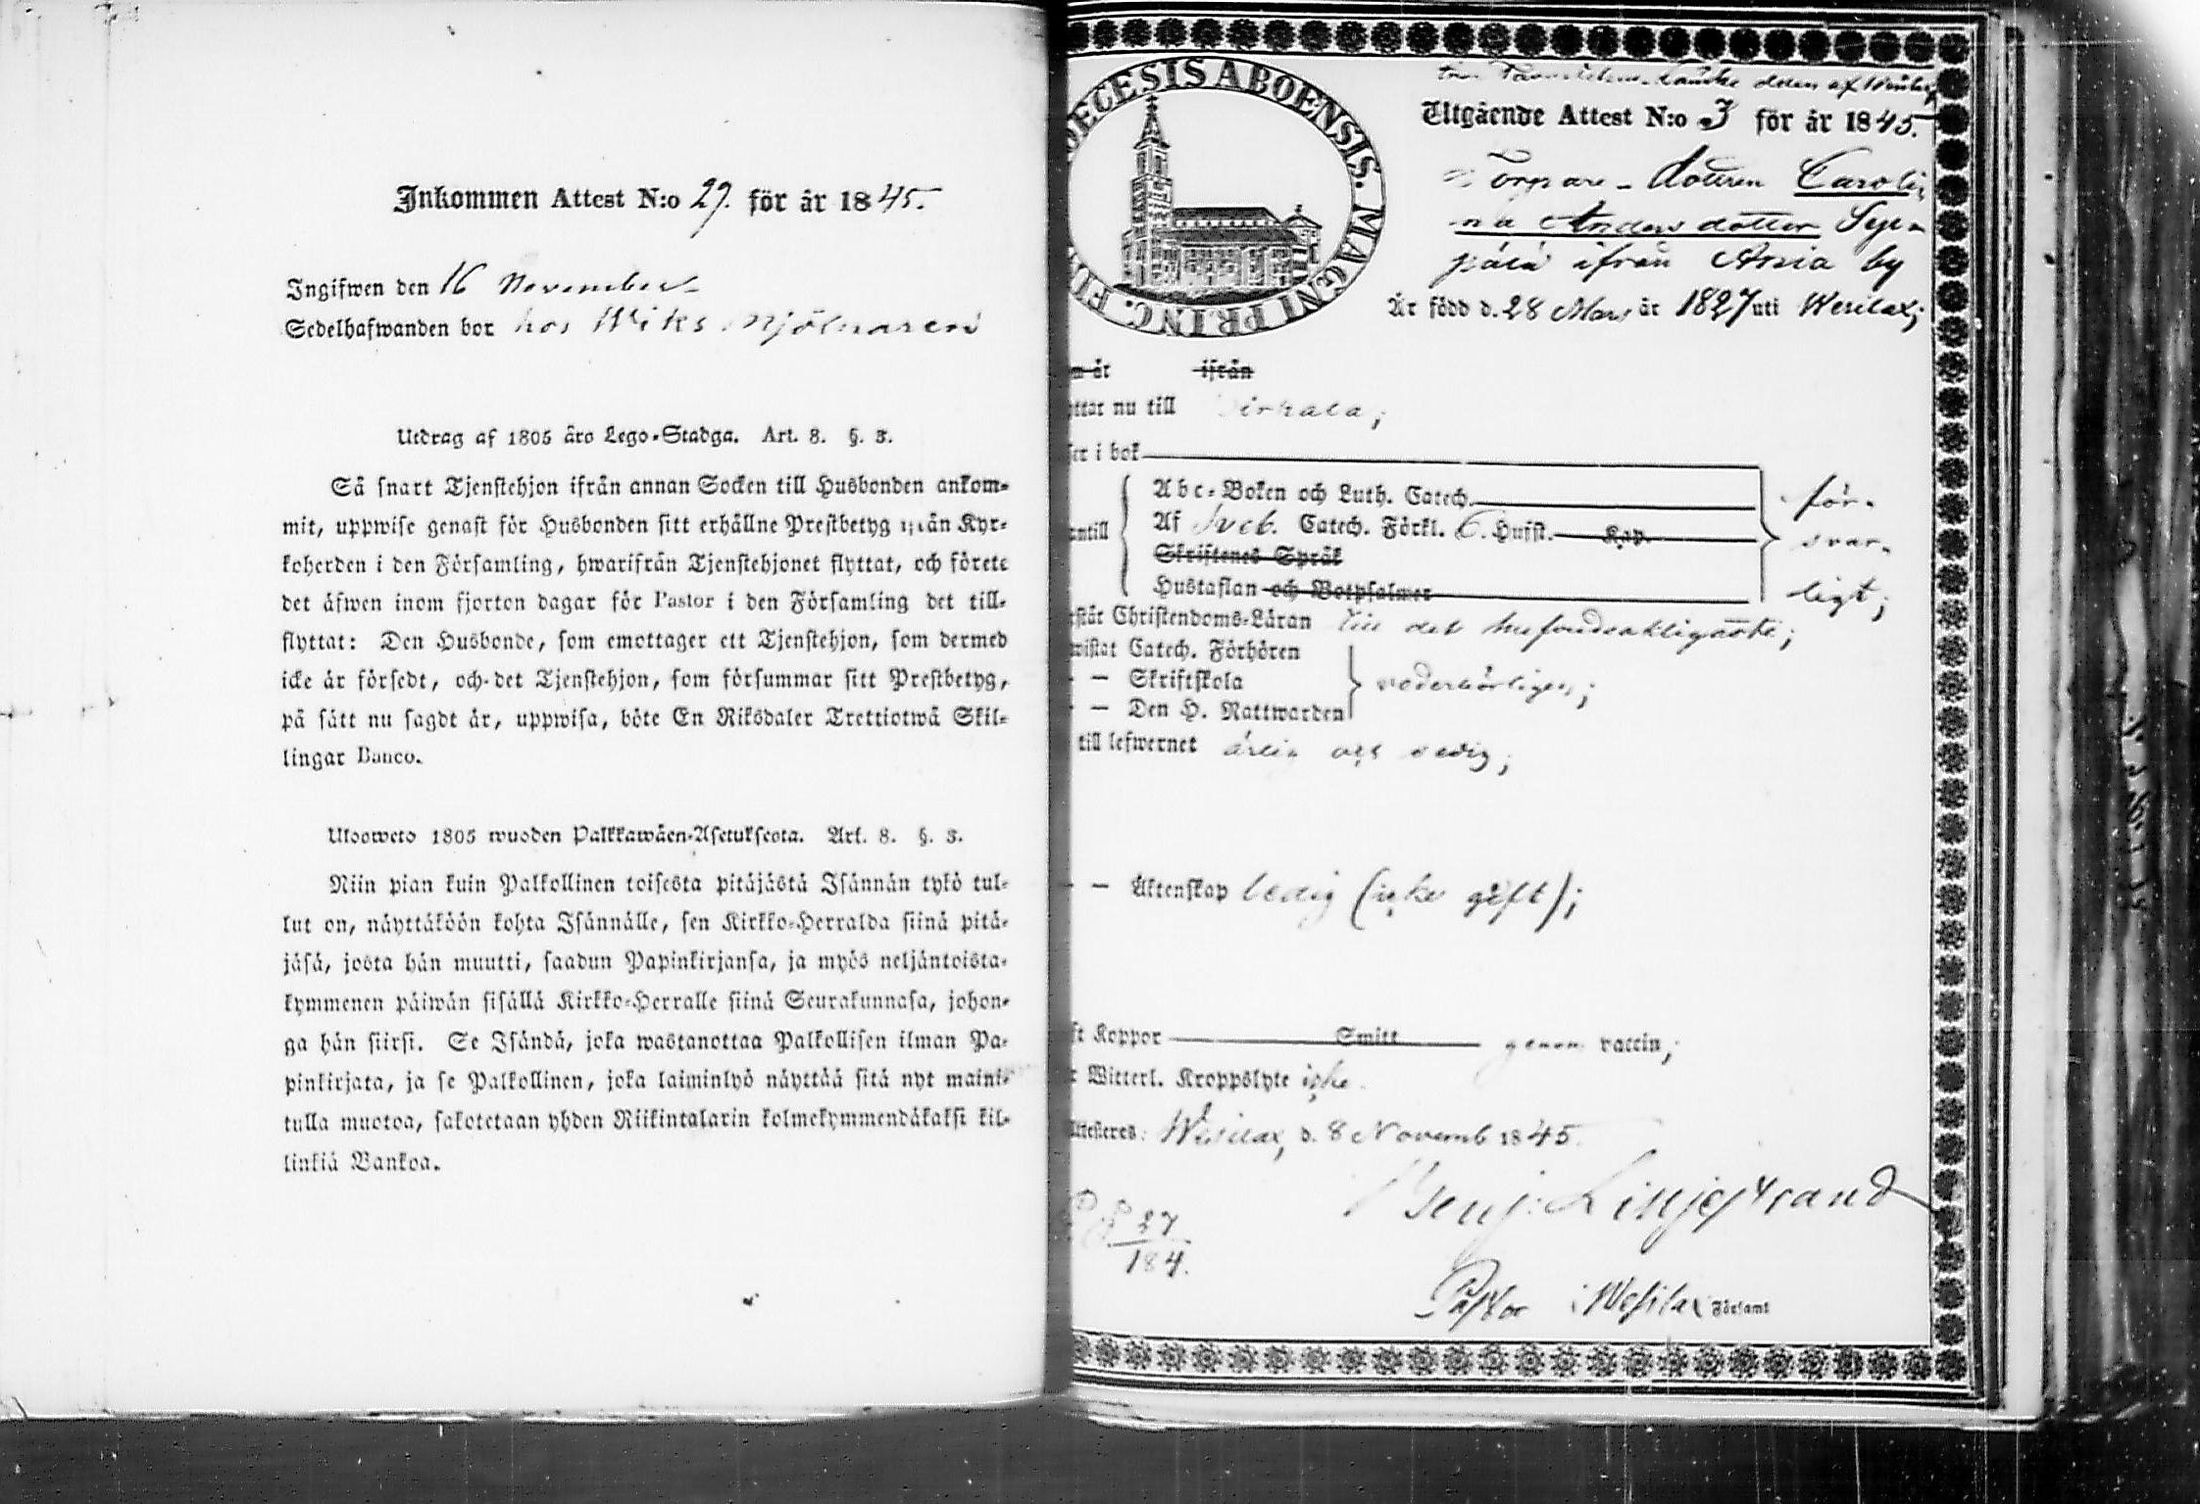 Inkommen Attest N:o 29. för år 1845.
Ingifwen den 16 November
Sedelhafwanden bor hos Wiks Mjölnaren
Utdrag af 1805 års Lego-Stadga. Art. 8. §. 3.
Så snart Tjenstehjon ifrån annan Socken till Husbonden ankom-
mit, uppwise genast för Husbonden sitt erhållne Prestbetyg ifrån Kyr-
koherden i den Församling, hwarifrån Tjenstehjonet flyttat, och förete
det äfwen inom fjorton dagar för Pastor i den Församling det till-
flyttat: Den Husbonde, som emottager ett Tjenstehjon, som dermed
icke är försedt, och det Tjenstehjon, som försummar sitt Prestbetyg,
på sätt nu sagdt är, uppwisa, böte En Riksdaler Trettiotwå Skil-
lingar Banco.
Ulosweto 1805 wuoden Palkkawäen-Asetuksesta. Art. 8. §. 3.
Niin pian kuin Palkollinen toisesta pitäjästä Isännän tykö tul-
lut on, näyttäköön kohta Isännälle, sen Kirkko-Herralda siinä pitä-
jäsä, josta hän muutti, saadun Papinkirjansa, ja myös neljäntoista-
kymmenen päiwän sisällä Kirkko-Herralle siinä Seurakunnasa, johon-
ga hän siirsi. Se Isändä, joka wastanottaa Palkollisen ilman Pa-
pinkirjata, ja se Palkollinen, joka laiminlyö näyttää sitä nyt maini-
tulla muotoa, sakotetaan yhden Riikintalarin kolmekymmendäkaksi kil-
linkiä Bankoa.
DIOECESIS ABOENSIS. MAGNI PRINC. FIN
Utgående Attest N:o 3 för år 1845.
Torpare-dottren Caroli-
na Andersdotter Sep-
pälä ifrån Ania by
Är född d. 28 Mars år 1827 uti Wesilax;
m år ifrån
ttar nu till Birkala;
ser i bok
Abc-Boken och Luth. Catech. för-
antill Af Sveb. Catech. Förkl. 6. Hufst. Kap. svar-
Skriftenes Språk
Hustaflan och Botpsalmer ligt;
rstår Christendoms-Läran till det hufvudsakligaste;
wistat Catech. Förhören
- Skriftskola vederbörligen;
- Den H. Nattwarden
till lefwernet ärlig och sedig;
- - Äktenskap ledig (icke gift);
ft Koppor Smitt genom vaccin;
r Witterl. Kroppslyte icke.
Attesteres: Wesilax, d. 8 Novemb 1845.
Benj: Liljestrand
27
184.
Pastor i Wesilax Förſaml